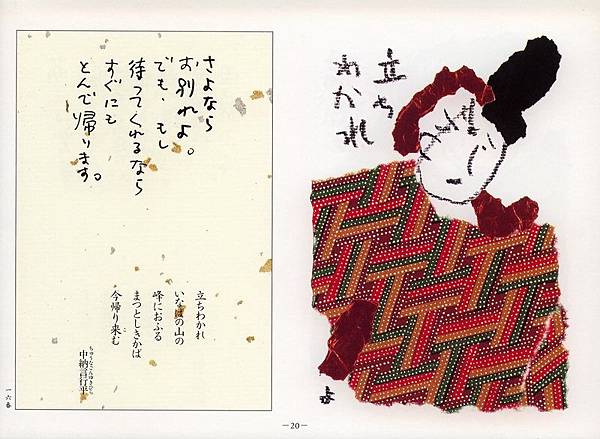 立ち
わかれ
さよなら
お別れよ。
でも、もし
待ってくれるなら
すぐにも
とんで帰ります。
立ちわかれ
いなばの山の
峰におふる
まつとしきかば
今帰り来む
中納言行平
ちゅうなごんゆきひら
一六番
—20—